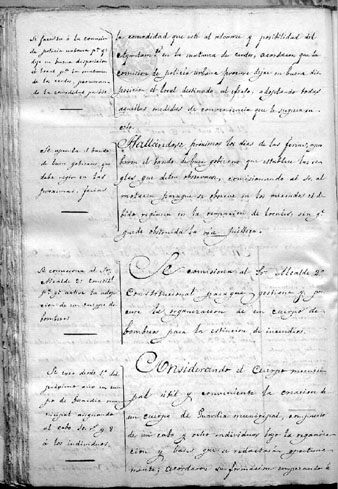 Se faculta á la comision
de policia urbana pª qᵉ
deje en buena disposicion
el local pª la matanza
de los cerdos, procurando
la comodidad posible.
la comodidad que esté al alcance y posibilidad del
Ayuntamtº en la matanza de cerdos, acordaron que la
comision de policia urbana procure dejar en buena dis-
posicion el local destinado al efecto, adoptando todas
aquellas medidas de conveniencia que le sugiera su
celo.
Se aprueba el bando
de buen gobierno que
debe regir en las
proximas ferias
Hallandose proximos los dias de las ferias, apro-
baron el bando de buen gobierno que establece las re-
glas que deben observarse, comisionando al Sr. al
para que se observe en los mercados el de-
bido en la de locales sin qᵉ
quede obstruida la via publica.
Se comisiona al Sr.
Alcalde 2º Constitl.
pª qᵉ active la adop-
cion de un cuerpo de
bomberos
Se comisiona al Sr. Alcalde 2º
Constitucional para que gestione y pro-
cure la organizacion de un cuerpo de
bomberos para la estincion de incendios.
Se crea desde 1º del
próximo año un cuer-
po de Guardia mu-
nicipal asignando
al cabo y 8
á los individuos.
Considerando el Cuerpo munici-
pal útil y conveniente la creacion de
un cuerpo de Guardia municipal, compuesto
de un cabo y ocho individuos bajo la organiza-
cion y bases que se redactaran oportuna-
mente; acordaron su formacion empezando á